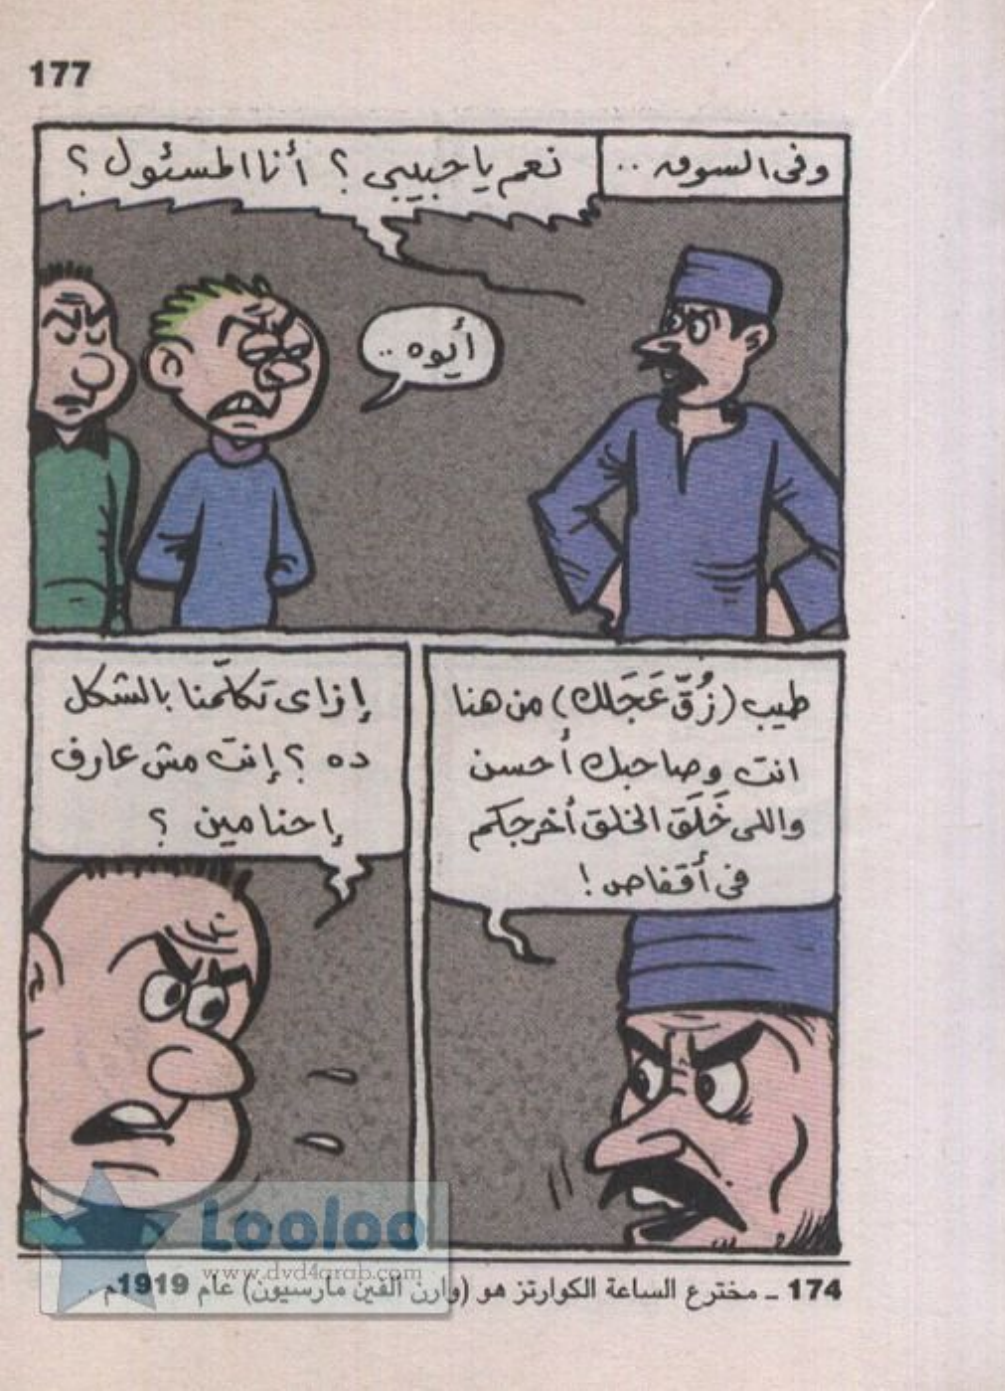 177
وفى السوق ..
نعم يا حبيبى ؟ أنا المسئول ؟
أيوه ..
طيب (زُقّ عَجَلك) من هنا
انت وصاحبك أحسن
واللى خَلَق الخلق أخرجكم
فى أقفاص !
إزاى تكلّمنا بالشكل
ده ؟ إنت مش عارف
إحنا مين ؟
Looloo
www.dvd4arab.com
174 ـ مخترع الساعة الكوارتز هو (وارن ألفين مارسيون) عام 1919م .